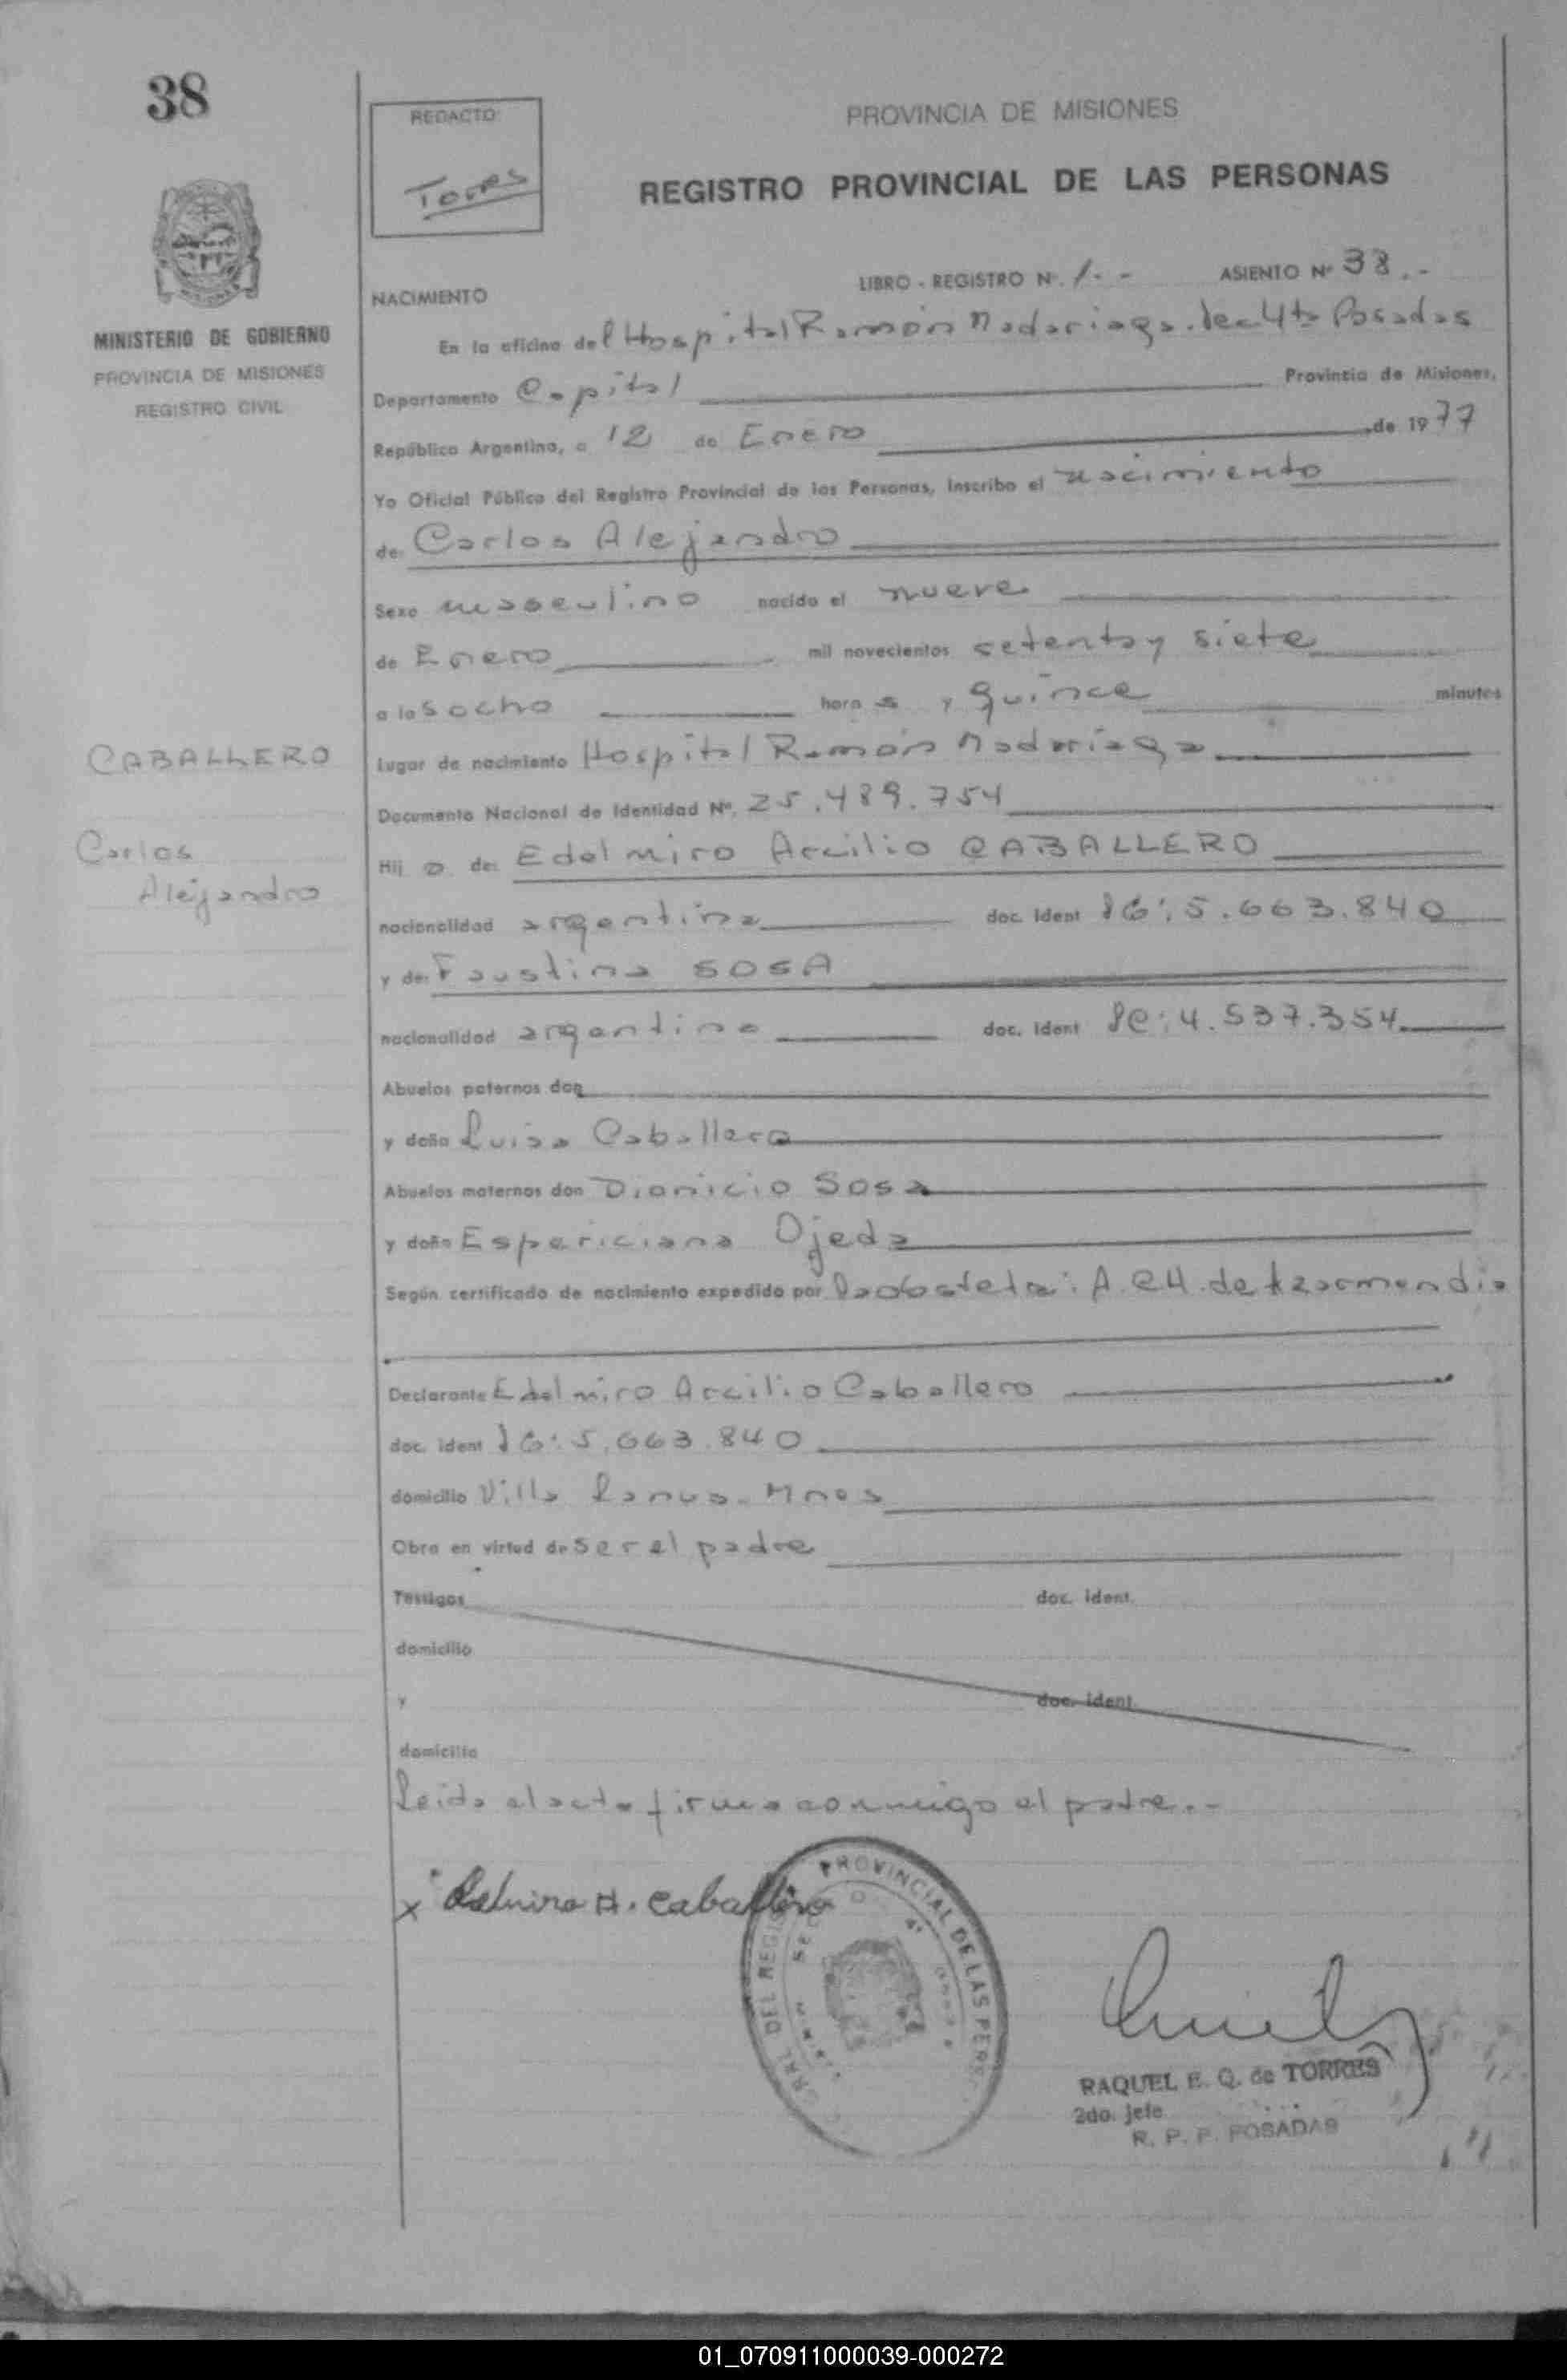 38
REDACTO:
Torres
PROVINCIA DE MISIONES
REGISTRO PROVINCIAL DE LAS PERSONAS
LIBRO - REGISTRO Nº. 1.- - ASIENTO Nº 38.-
NACIMIENTO
MINISTERIO DE GOBIERNO
PROVINCIA DE MISIONES
REGISTRO CIVIL
En la oficina del Hospital Ramón Madariaga. Sec 4ta Posadas
Departamento Capital Provincia de Misiones,
República Argentina, a 12 de Enero de 1977
Yo Oficial Público del Registro Provincial de las Personas, inscribo el nacimiento
de: Carlos Alejandro
Sexo masculino nacido el nueve
de Enero mil novecientos setenta y siete
a las ocho hora s y quince minutos
CABALLERO
Carlos
Alejandro
Lugar de nacimiento Hospital Ramón Madariaga
Documento Nacional de Identidad Nº. 25.489.754
Hij o de: Edelmiro Arcilio CABALLERO
nacionalidad argentina doc. Ident 5.663.840
y de: Faustina SOSA
nacionalidad argentina doc. Ident LC: 4.537.354
Abuelos paternos don
y doña Luisa Caballero
Abuelos maternos don Dionicio Sosa
y doña Espericiana Ojeda
Según certificado de nacimiento expedido por la obstetra: A. CH. de Azarmendia
Declarante Edelmiro Arcilio Caballero
doc. ident 5.663.840
domicilio Villa Lanus - Mnes
Obra en virtud de ser el padre
Testigos doc. ident.
domicilio
y doc. ident.
domicilio
Leida el acta firma conmigo el padre.-
x Edelmiro A. Caballero
PROVINCIAL DE LAS PERS
DEL REGIS
RAQUEL E. Q. de TORRES
2do. Jefe
R. P. P. POSADAS
01_070911000039-000272